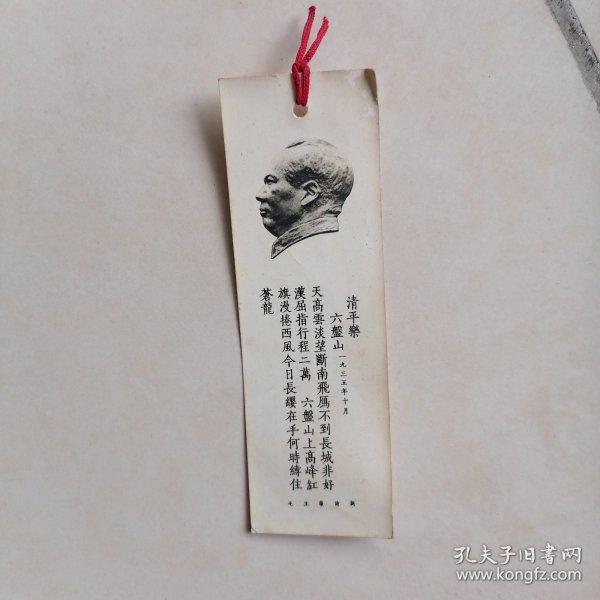 清平樂
六盤山 一九三五年十月
天高雲淡望斷南飛雁不到長城非好
漢屈指行程二萬 六盤山上高峰紅
旗漫捲西風今日長纓在手何時縛住
蒼龍
孔夫子旧书网
www.kongfz.com